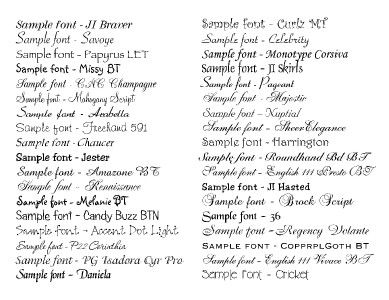 Sample font - JI Braver
Sample font - Savoye
Sample font - Papyrus LET
Sample font - Missy BT
Sample font - CAC Champagne
Sample font - Mahogany Script
Sample font - Arabella
Sample font - Freehand 591
Sample font - Chaucer
Sample font - Jester
Sample font - Amazone BT
Sample font - Renaissance
Sample font - Melanie BT
Sample font - Candy Buzz BTN
Sample font - Accent Dot Light
Sample font - P22 Corinthia
Sample font - PG Isadora Cyr Pro
Sample font - Daniela
Sample font - Curlz MT
Sample font - Celebrity
Sample font - Monotype Corsiva
Sample font - JI Skirls
Sample font - Pageant
Sample font - Majestic
Sample font - Nuptial
Sample font - SheerElegance
Sample font - Harrington
Sample font - Roundhand Bd BT
Sample font - English 111 Presto BT
Sample font - JI Hasted
Sample font - Brock Script
Sample font - 36
Sample font - Regency Volante
Sample font - CopprplGoth BT
Sample font - English 111 Vivace BT
Sample font - Cricket